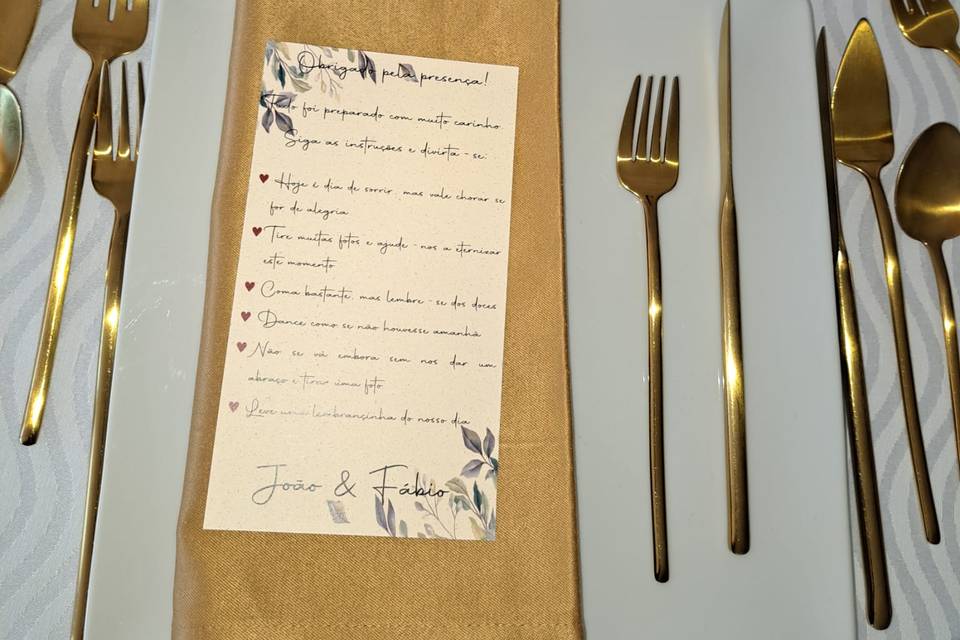 Obrigado pela presença!
Tudo foi preparado com muito carinho.
Siga as instruções e divirta-se:
Hoje é dia de sorrir, mas vale chorar se
for de alegria
Tire muitas fotos e ajude-nos a eternizar
este momento
Coma bastante, mas lembre-se dos doces
Dance como se não houvesse amanhã
Não se vá embora sem nos dar um
abraço e tirar uma foto
Leve uma lembrancinha do nosso dia
João & Fábio